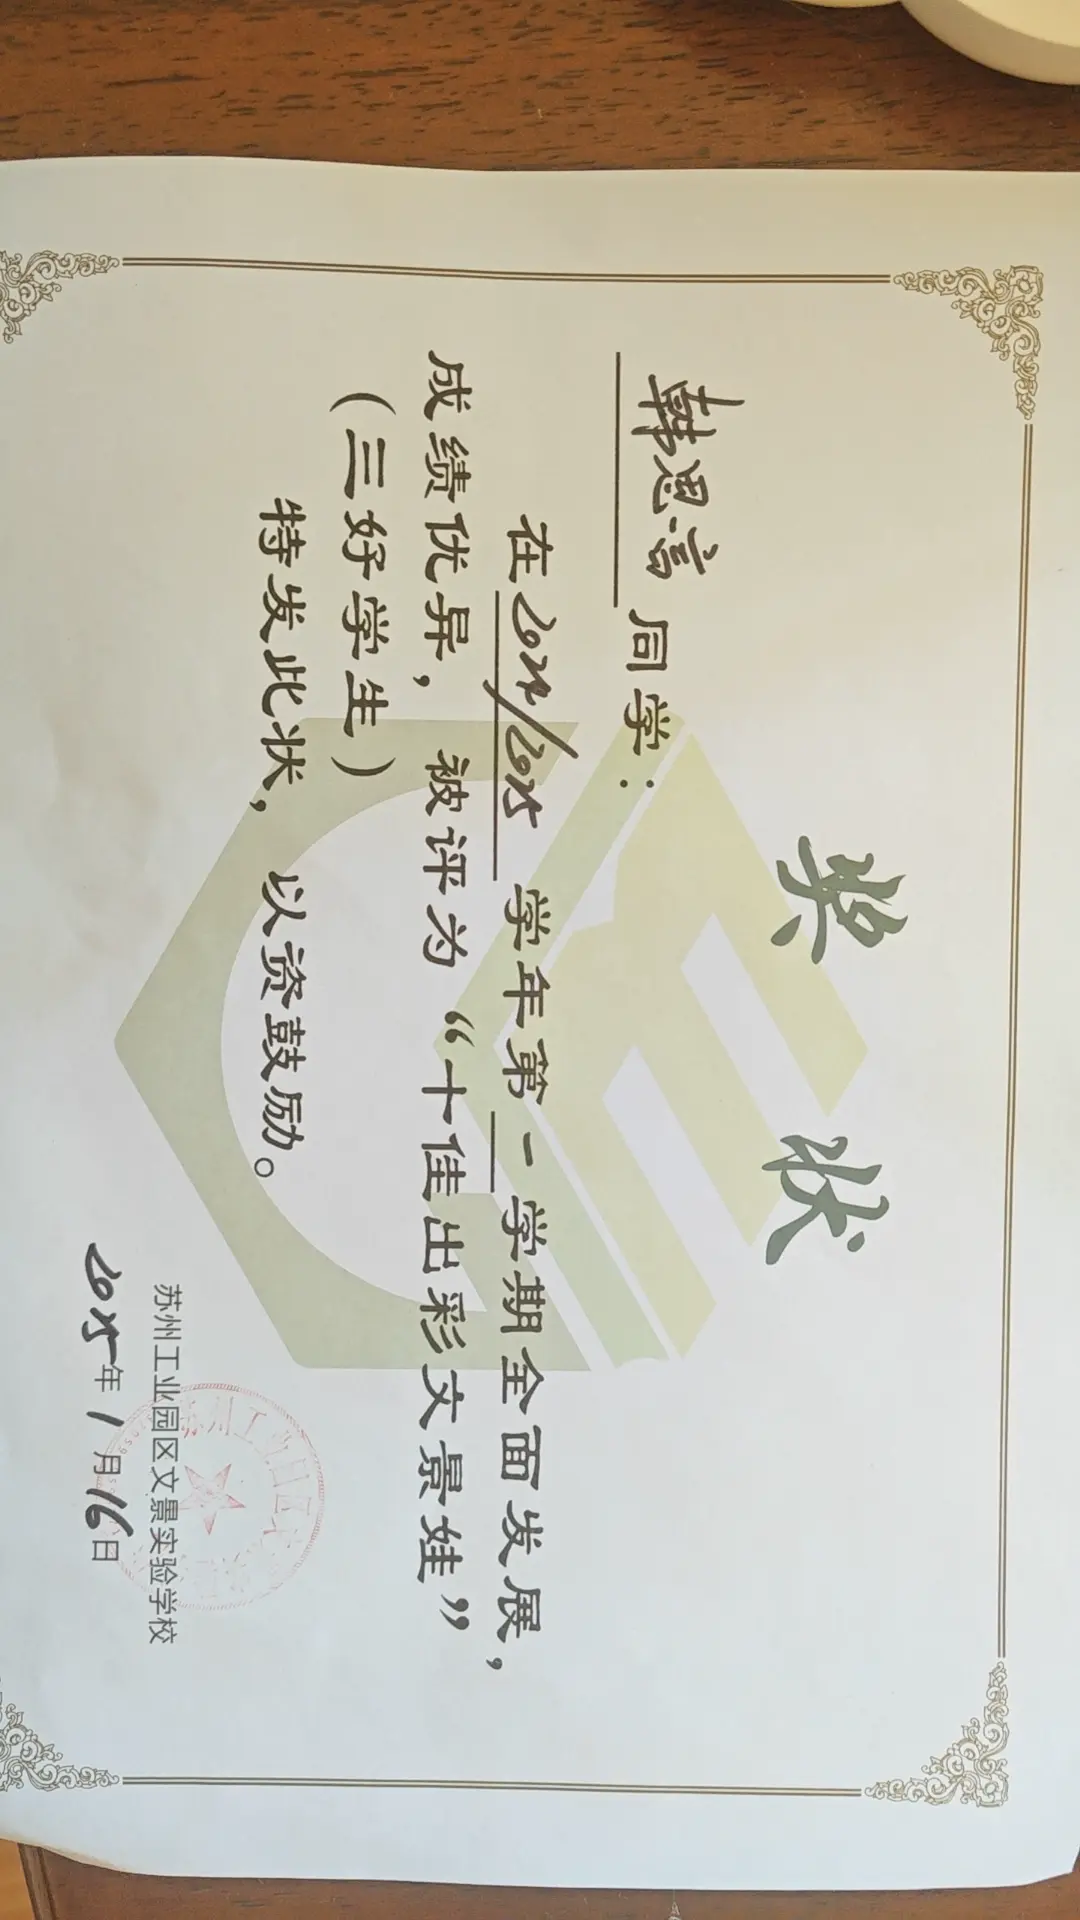 奖状
韩思言同学：
在2024/2025学年第一学期全面发展，
成绩优异，被评为“十佳出彩文景娃”
（三好学生）
特发此状，以资鼓励。
苏州工业园区文景实验学校
2025年1月16日